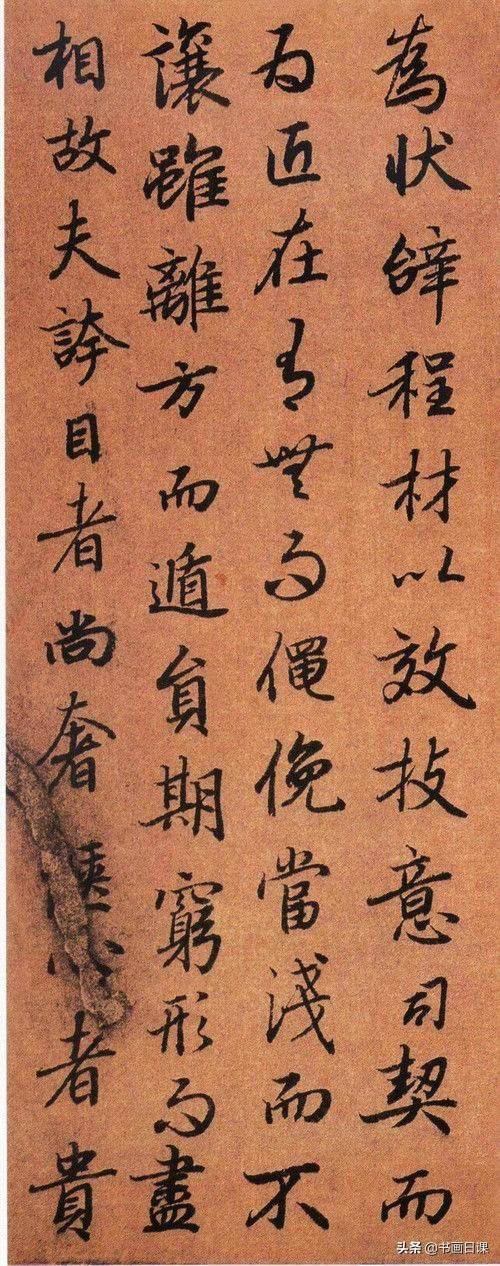 為狀辭程材以效技意司契而
為匠在有無而僶俛當淺而不
讓雖離方而遁員期窮形而盡
相故夫誇目者尚奢愜心者貴
头条 @书画日课